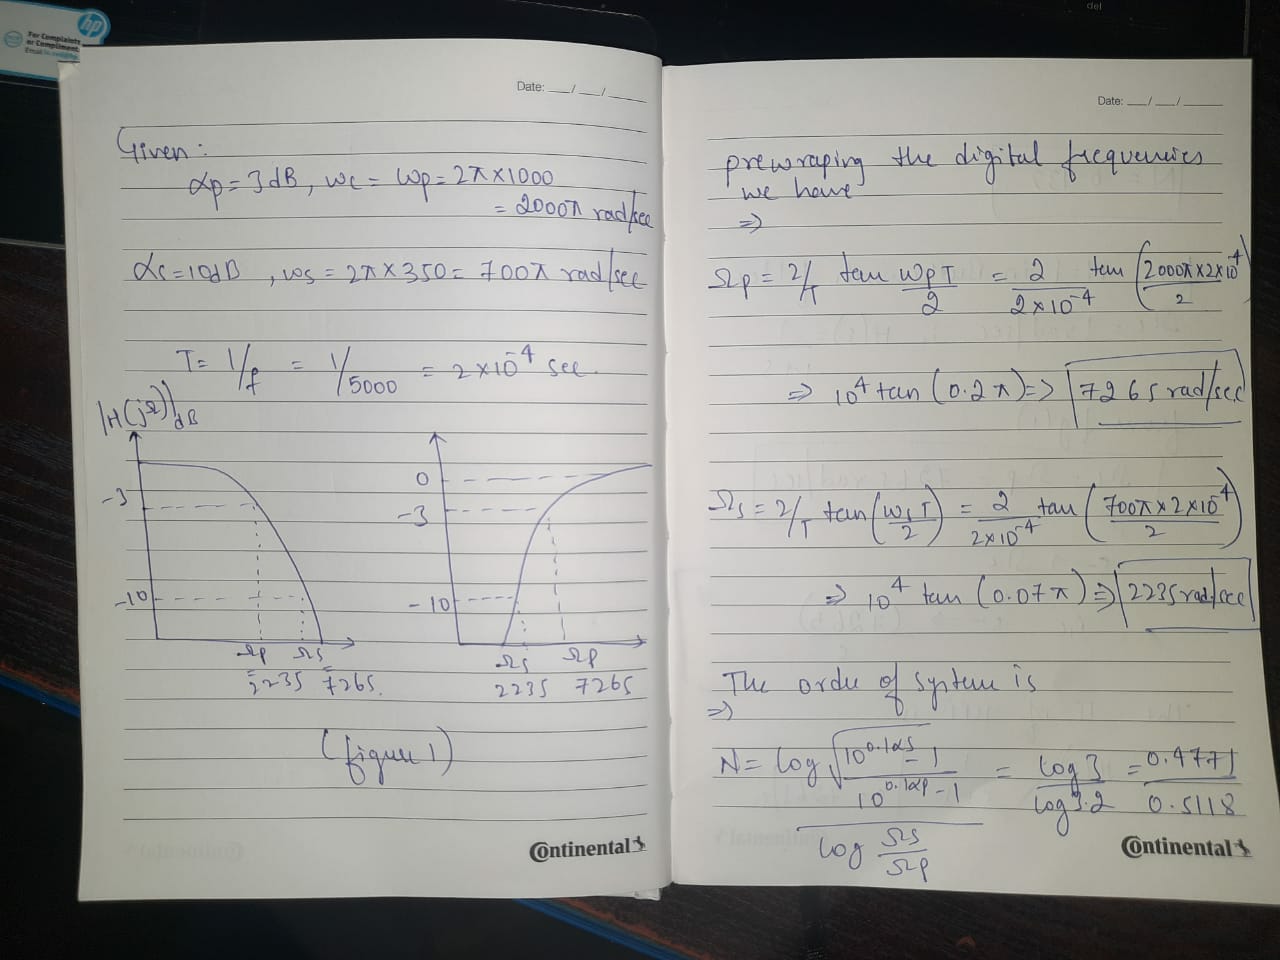 del
hp
For Complaints
or Compliment
Date: __/__/____
Given:
αp = 3dB, wc = wp = 2π×1000
= 2000π rad/sec
αs = 10dB, ws = 2π×350 = 700π rad/sec
T = 1/f = 1/5000 = 2×10^-4 sec.
|H(jΩ)|dB
-3
-10
Ωp Ωs
= =
2235 7265.
0
-3
-10
Ωs Ωp
2235 7265
(figure 1)
Continental
Date: __/__/____
prewraping the digital frequencies
we have
⇒
Ωp = 2/T tan wpT/2 = 2/(2×10^-4) tan (2000π×2×10^-4/2)
⇒ 10^4 tan (0.2π) ⇒ 7265 rad/sec
Ωs = 2/T tan (wsT/2) = 2/(2×10^-4) tan (700π×2×10^-4/2)
⇒ 10^4 tan (0.07π) ⇒ 2235 rad/sec
The order of system is
⇒
N = log √(10^0.1αs - 1 / 10^0.1αp - 1) / log Ωs/Ωp = log 3/log 3.2 = 0.4771/0.5118
Continental